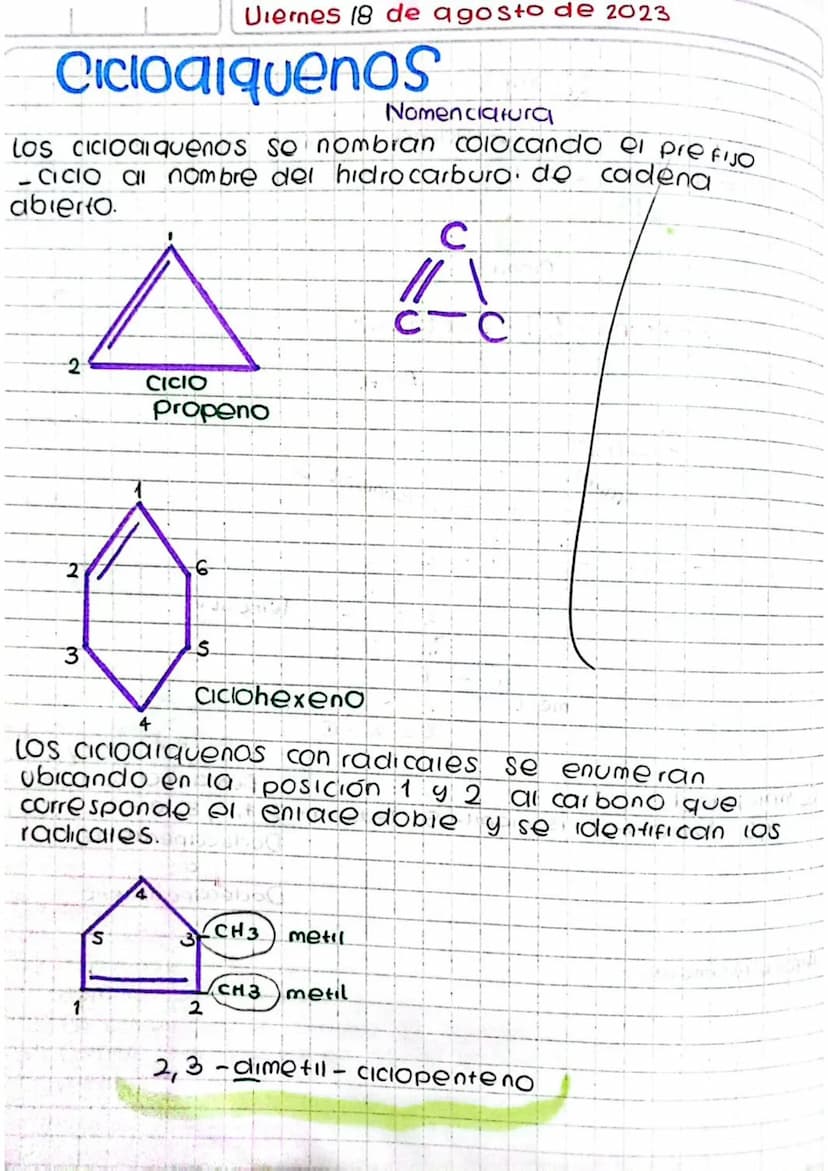 Viernes 18 de agosto de 2023
Cicloalquenos
Nomenclatura
Los cicloalquenos se nombran colocando el prefijo
-ciclo al nombre del hidrocarburo. de cadena
abierto.
1
C
C C
2
ciclo
propeno
1
2 6
3 5
Ciclohexeno
4
Los cicloalquenos con radicales se enumeran
ubicando en la posición 1 y 2 al carbono que
corresponde el enlace doble y se identifican los
radicales.
4
5 3 CH3 metil
CH3 metil
1 2
2,3 -dimetil- ciclopenteno